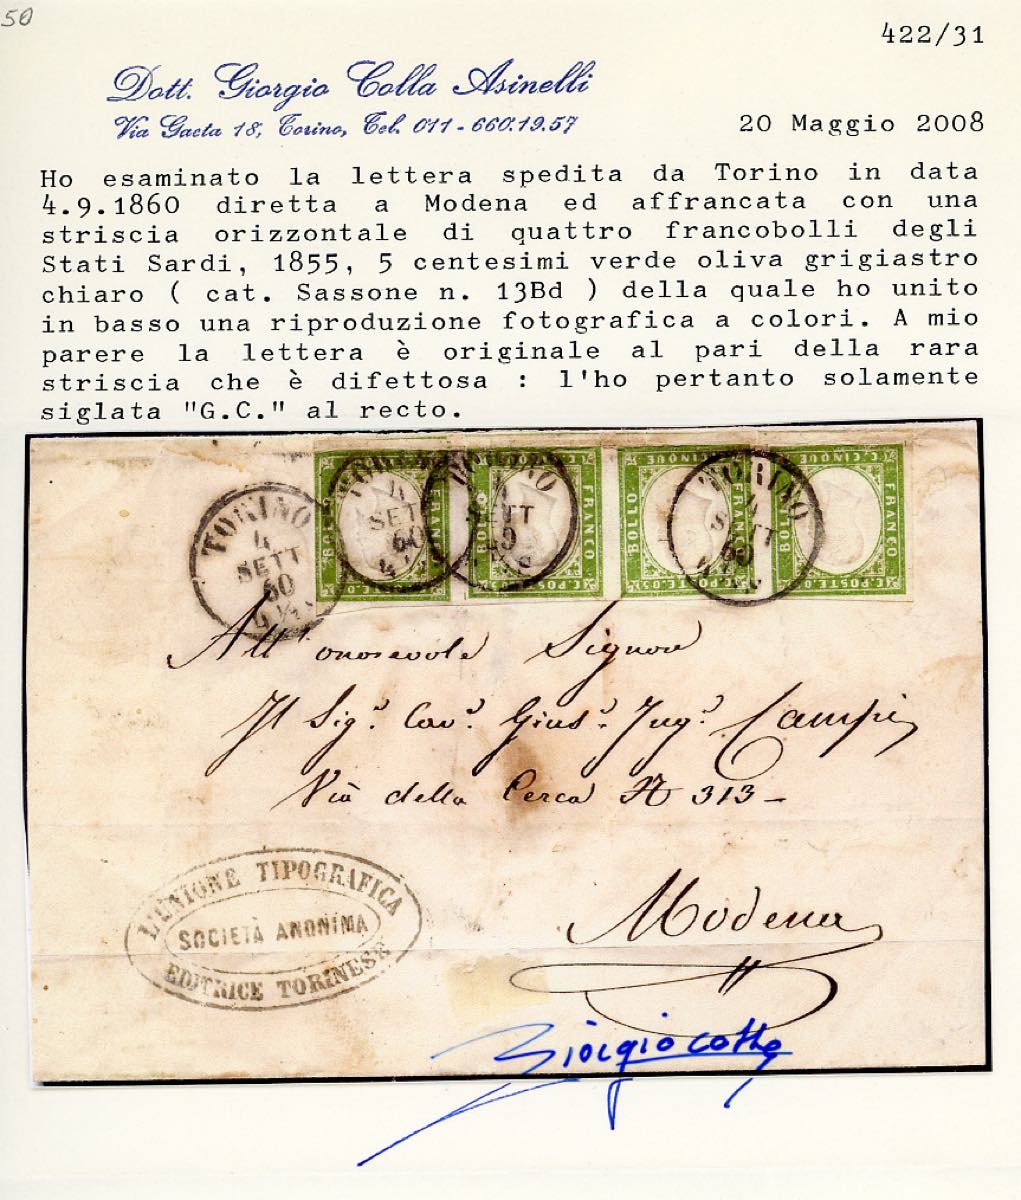 50
422/31
Dott. Giorgio Colla Asinelli
Via Gaeta 18, Torino, Tel. 011-660.19.57
20 Maggio 2008
Ho esaminato la lettera spedita da Torino in data
4.9.1860 diretta a Modena ed affrancata con una
striscia orizzontale di quattro francobolli degli
Stati Sardi, 1855, 5 centesimi verde oliva grigiastro
chiaro ( cat. Sassone n. 13Bd ) della quale ho unito
in basso una riproduzione fotografica a colori. A mio
parere la lettera è originale al pari della rara
striscia che è difettosa : l'ho pertanto solamente
siglata "G.C." al recto.
C. CINQUE C. CINQUE
TORINO 4 SETT 60
BOLLO FRANCO BOLLO FRANCO BOLLO BOLLO FRANCO
TORINO 4 SETT 60
C. POSTE. 05 C. POSTE. 05 C. POSTE. 05
All'onorevole Signor
Il Sigr. Cavr. Gius. Ingr. Campi
Via della Cerca N 313-
Modena
L'UNIONE TIPOGRAFICA
SOCIETÀ ANONIMA
EDITRICE TORINESE
Giorgio Colla